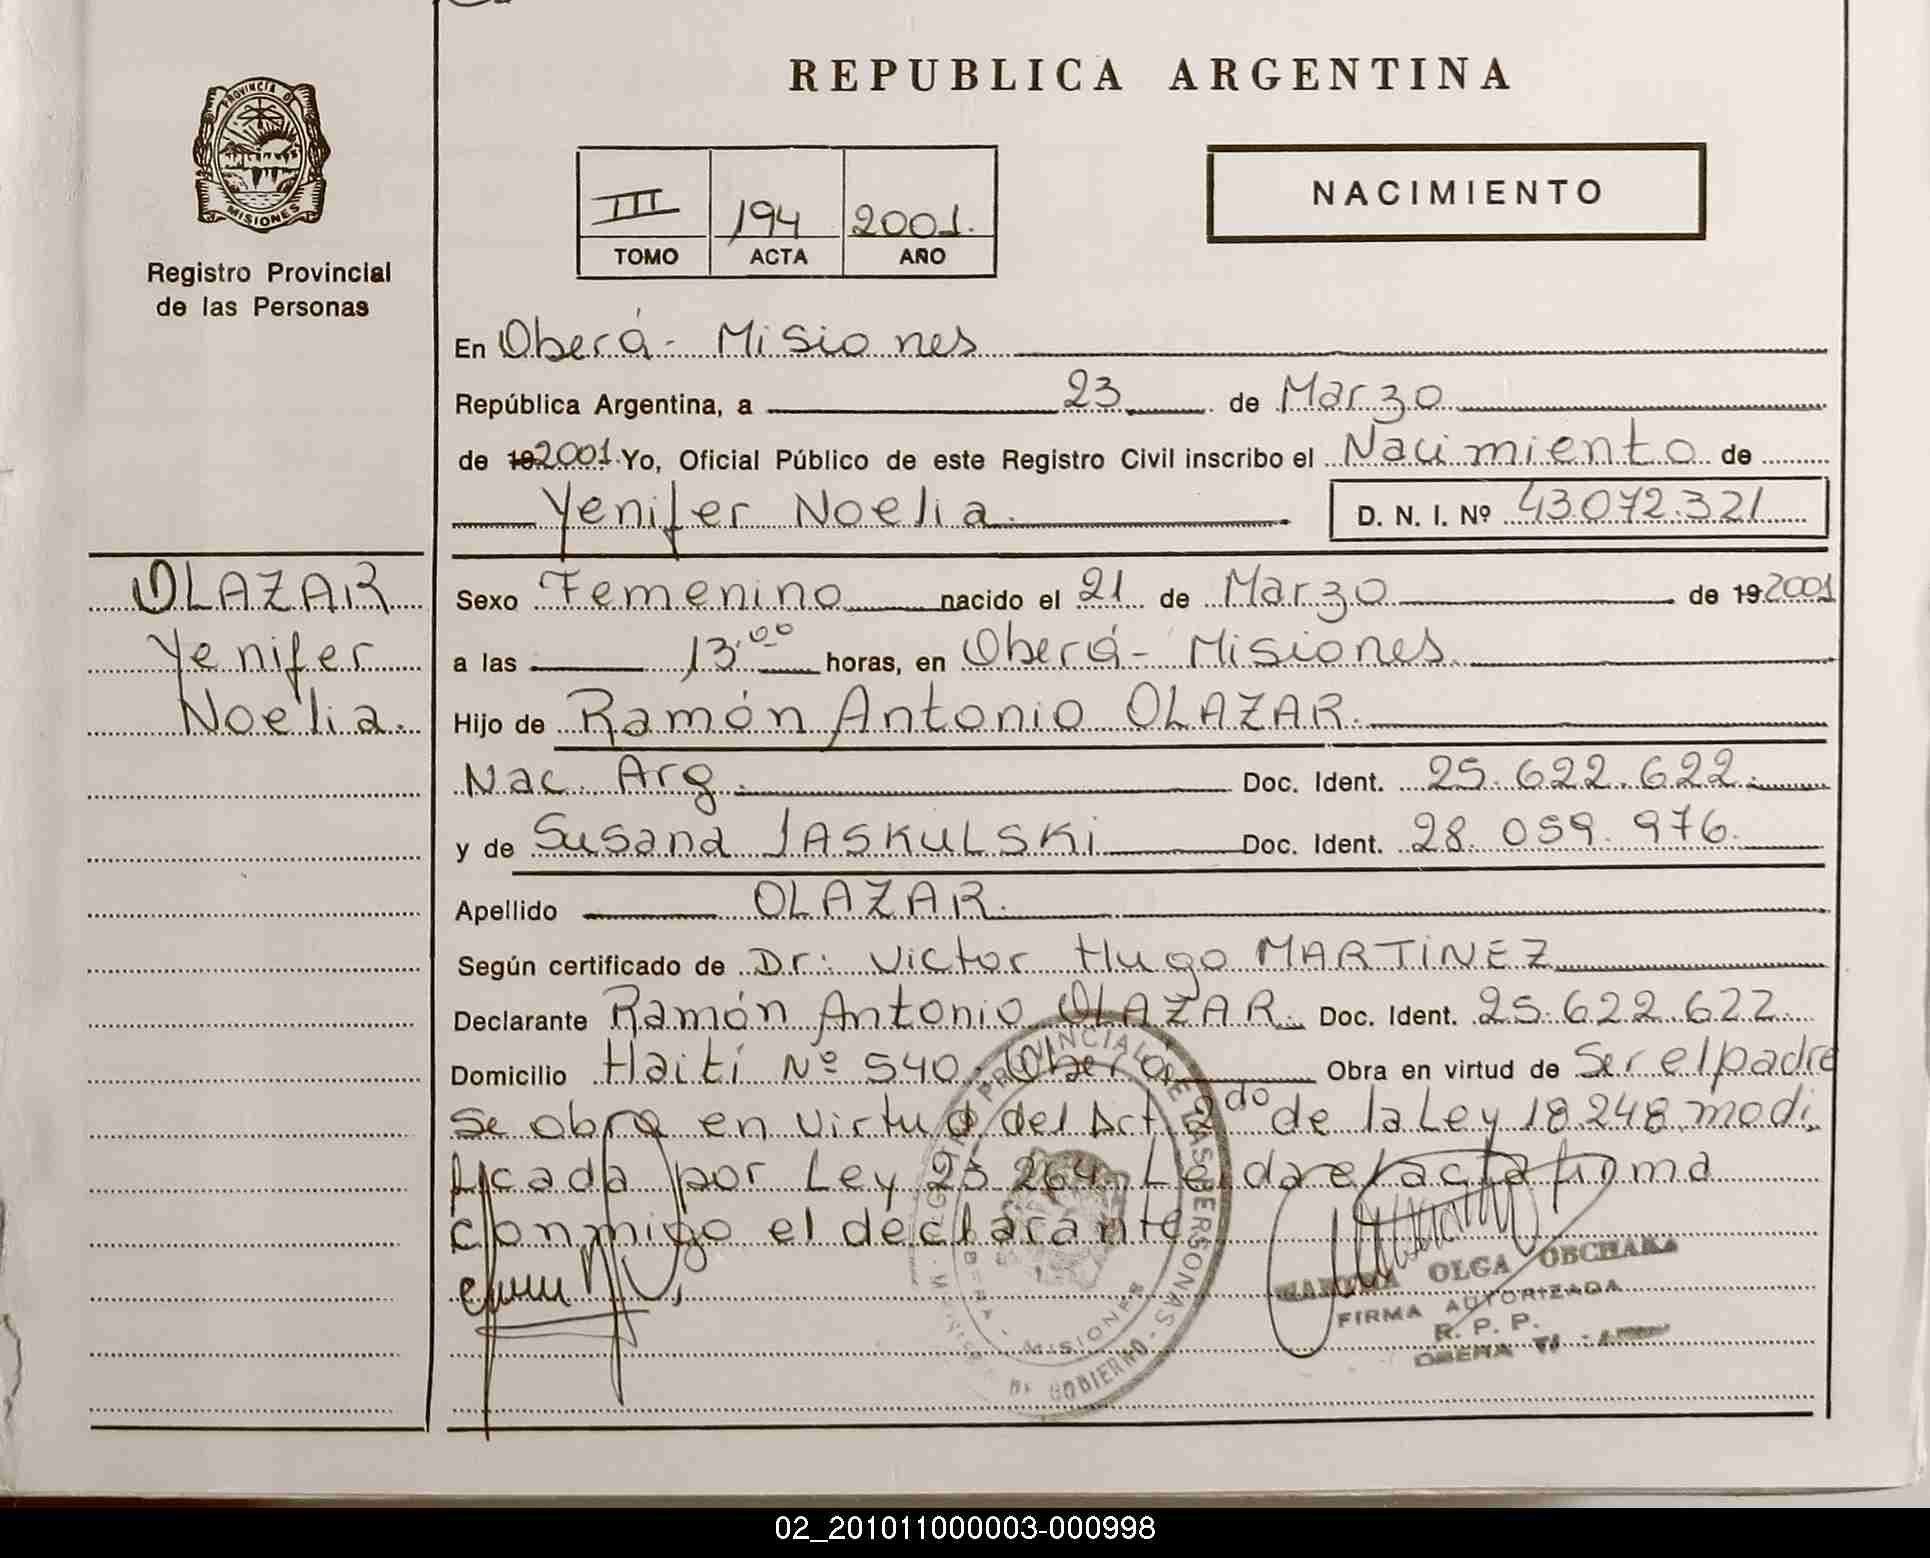 REPUBLICA ARGENTINA
PROVINCIA D
MISIONES
Registro Provincial
de las Personas
III 194 2001.
TOMO ACTA AÑO
NACIMIENTO
En Oberá - Misiones
República Argentina, a 23 de Marzo
de 19 2001 Yo, Oficial Público de este Registro Civil inscribo el Nacimiento de
Yenifer Noelia.
D. N. I. Nº 43.072.321
OLAZAR
Yenifer
Noelia.
Sexo Femenino nacido el 21 de Marzo de 19 2001
a las 13.00 horas, en Oberá - Misiones
Hijo de Ramón Antonio OLAZAR.
Nac. Arg. Doc. Ident. 25.622.622.
y de Susana JASKULSKi Doc. Ident. 28.059.976.
Apellido OLAZAR.
Según certificado de Dr: Victor Hugo MARTiNEZ
Declarante Ramón Antonio OLAZAR. Doc. Ident. 25.622.622.
Domicilio Haití Nº 540. Oberá. Obra en virtud de Ser el padre
Se obra en virtud del Art. 2do de la Ley 18.248 modi
ficada por Ley 23.264. Leida el acta firma
conmigo el declarante
PROVINCIAL DE LAS PERSONAS
MISIONES
DE GOBIERNO
OLGA OBCHARA
FIRMA AUTORIZADA
R. P. P.
OBERA
02_201011000003-000998